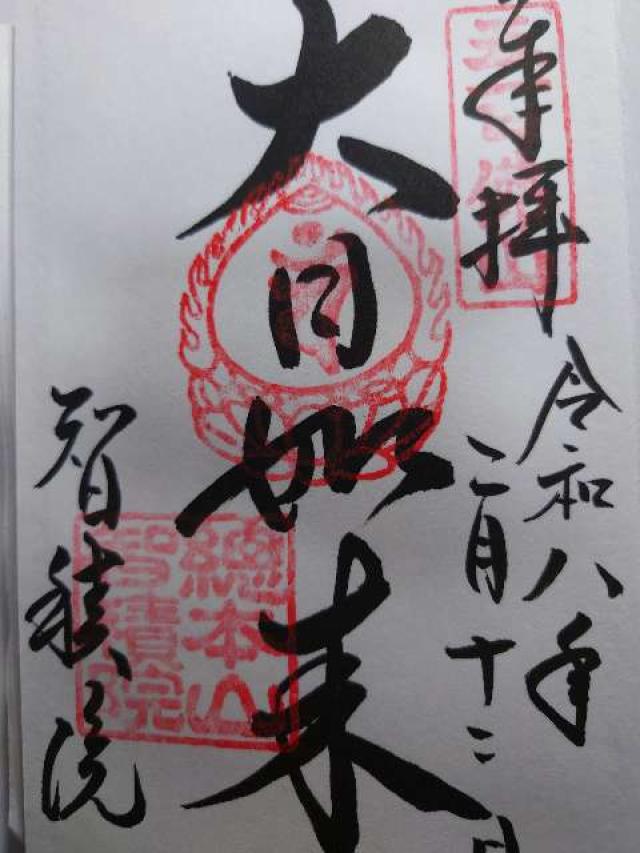 奉拝
令和八年
二月十二日
大日如来
智積院
總本山
智積院